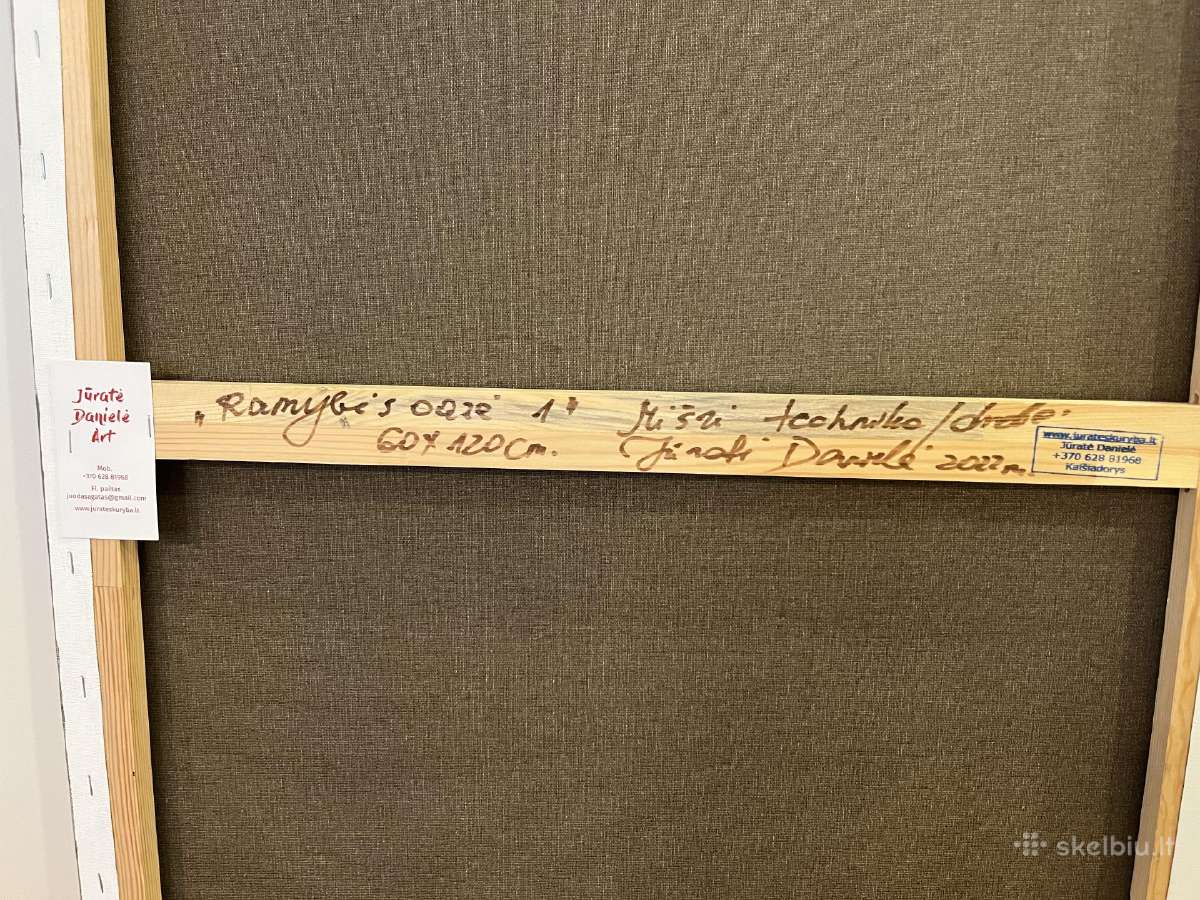 Jūratė
Danielė
Art
Mob.
+370 628 81968
El. paštas
juodasagatas@gmail.com
www.jurateskuryba.lt
„Ramybės oazė 1" Mišri technika/drobė.
60x120cm. Jūratė Danielė 2022m.
www.jurateskuryba.lt
Jūratė Danielė
+370 628 81968
Kaišiadorys
skelbiu.lt